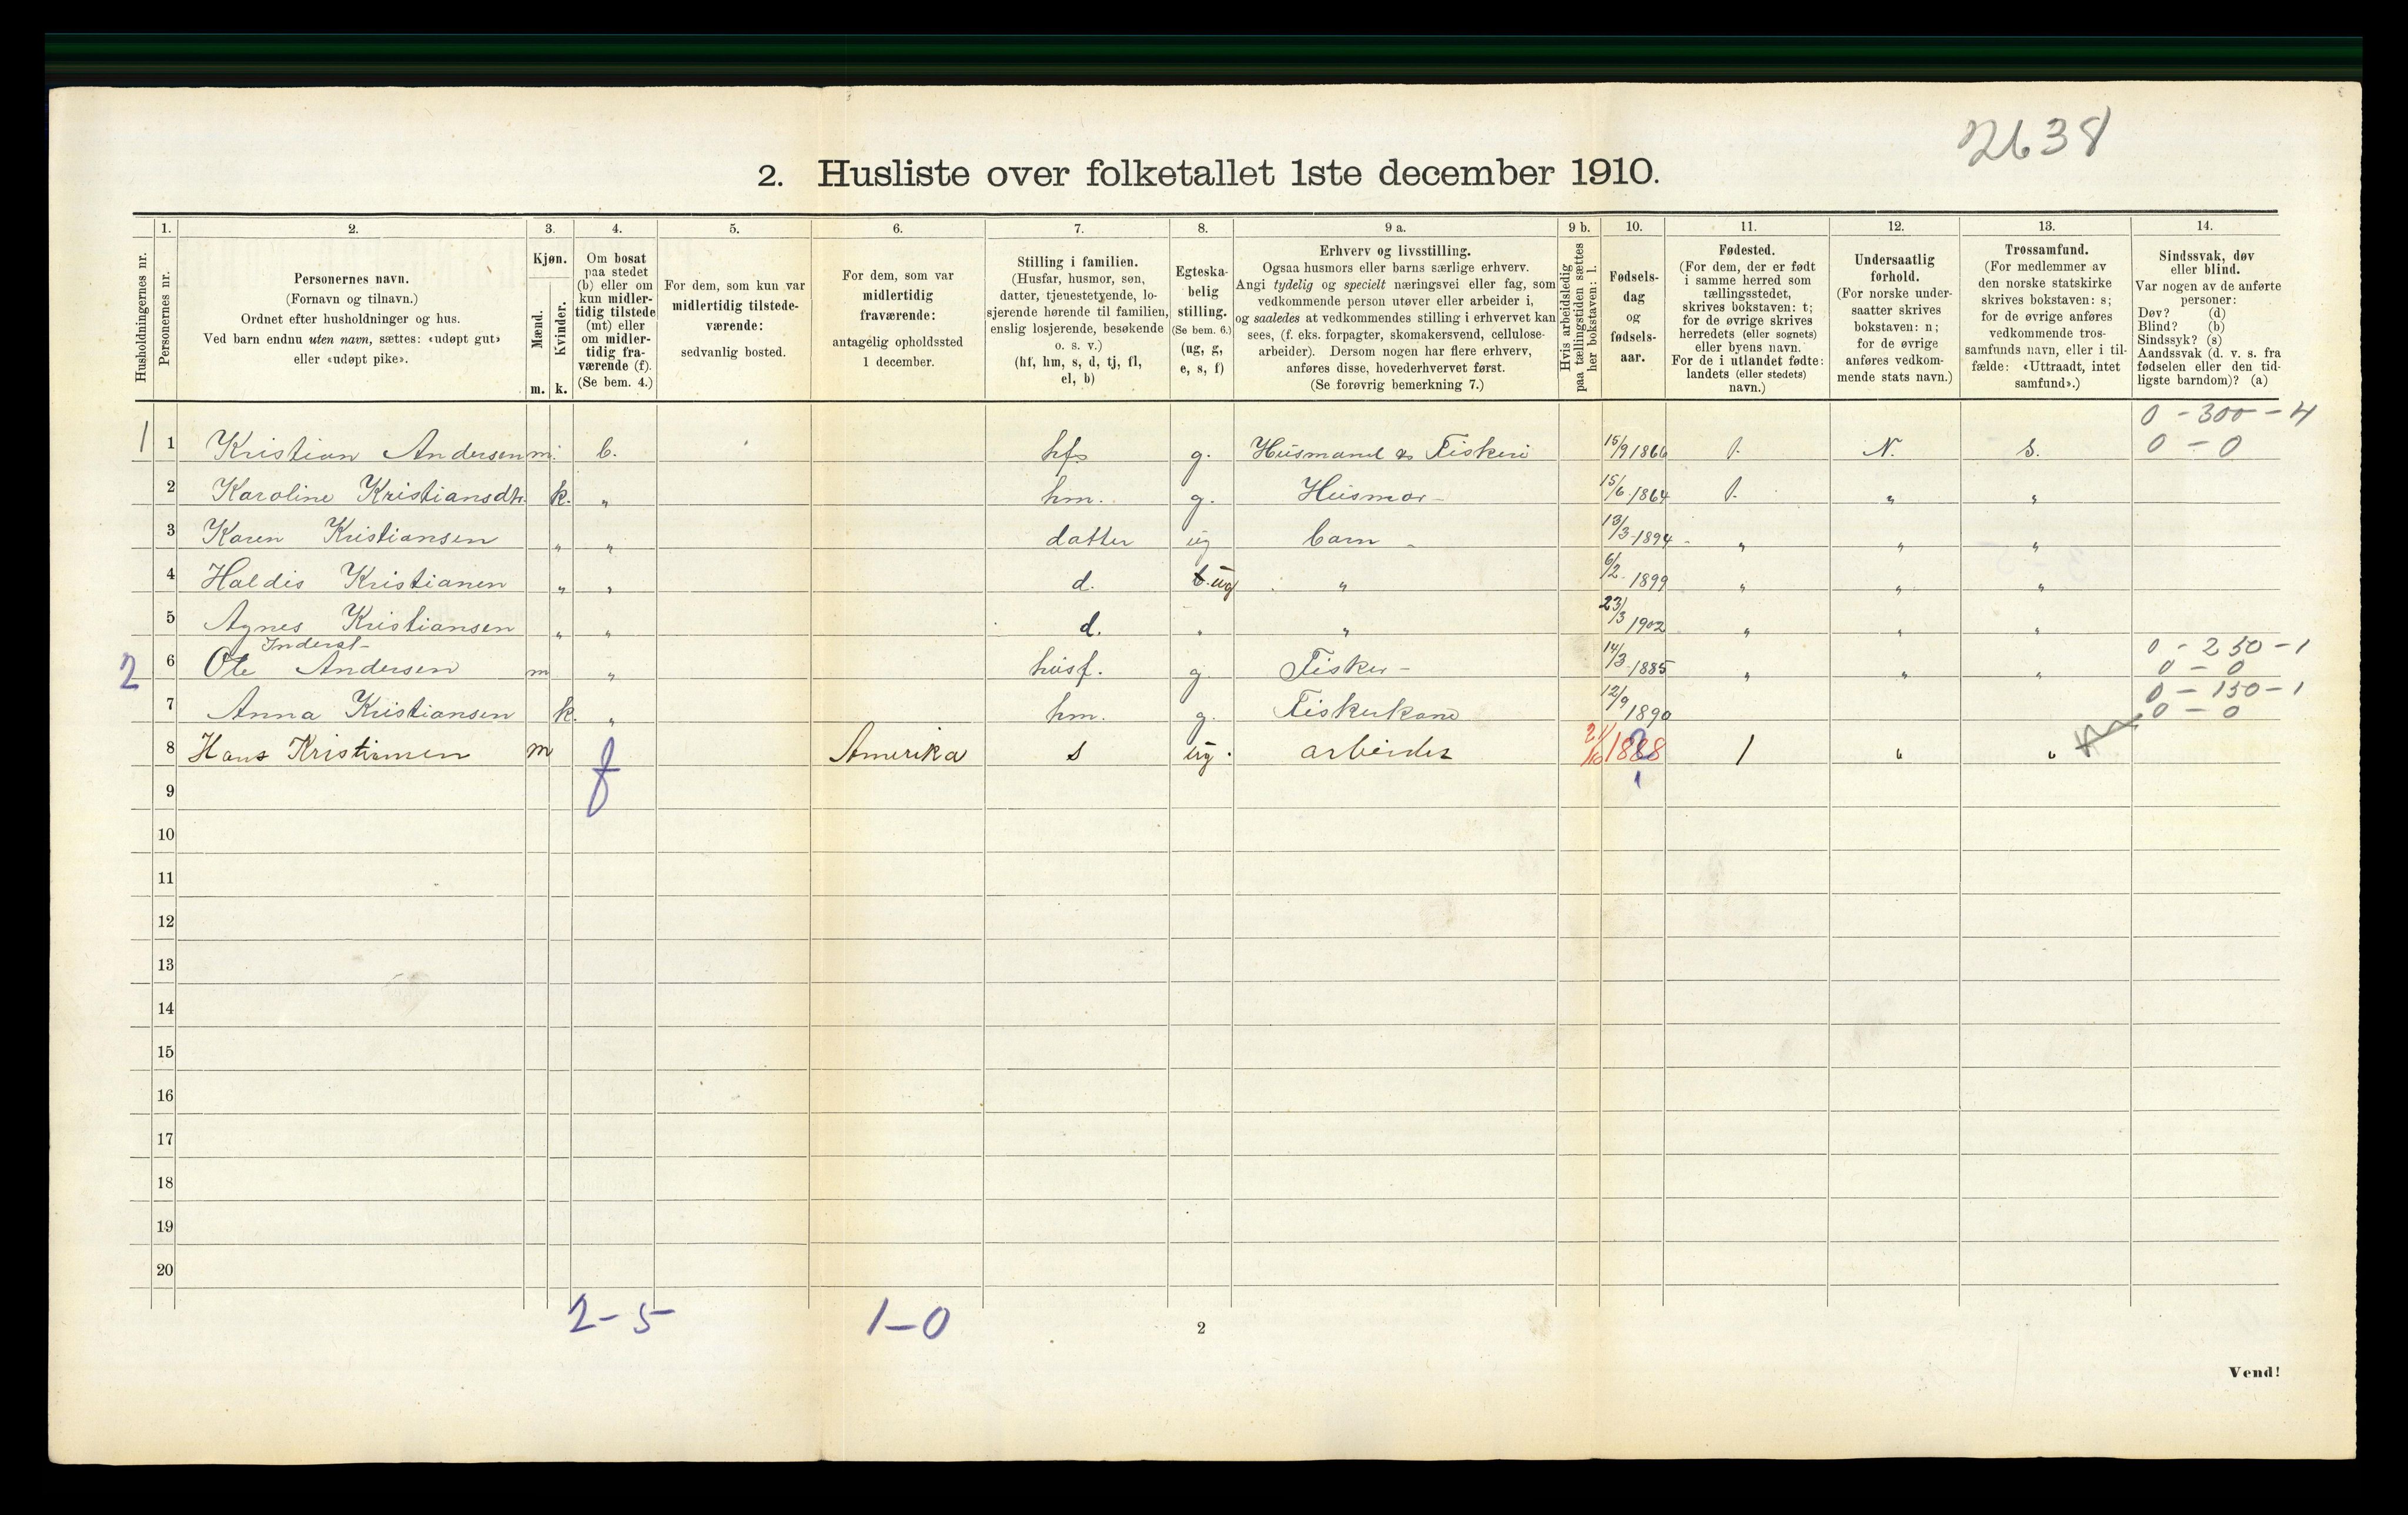 2638
2. Husliste over folketallet 1ste december 1910.
Husholdningernes nr.
1.
Personernes nr.
2.
Personernes navn.
(Fornavn og tilnavn.)
Ordnet efter husholdninger og hus.
Ved barn endnu uten navn, sættes: «udøpt gut»
eller «udøpt pike».
3.
Kjøn.
Mænd.
m.
Kvinder.
k.
4.
Om bosat
paa stedet
(b) eller om
kun midler-
tidig tilstede
(mt) eller
om midler-
tidig fra-
værende (f).
(Se bem. 4.)
5.
For dem, som kun var
midlertidig tilstede-
værende:
sedvanlig bosted.
6.
For dem, som var
midlertidig
fraværende:
antagelig opholdssted
1 december.
7.
Stilling i familien.
(Husfar, husmor, søn,
datter, tjenestetygende, lo-
sjerende hørende til familien,
enslig losjerende, besøkende
o. s. v.)
(hf, hm, s, d, tj, fl,
el, b)
8.
Egteska-
belig
stilling.
(Se bem. 6.)
(ug, g,
e, s, f)
9 a.
Erhverv og livsstilling.
Ogsaa husmors eller barns særlige erhverv.
Angi tydelig og specielt næringsvei eller fag, som
vedkommende person utøver eller arbeider i,
og saaledes at vedkommendes stilling i erhvervet kan
sees, (f. eks. forpagter, skomakersvend, cellulose-
arbeider). Dersom nogen har flere erhverv,
anføres disse, hovederhvervet først.
(Se forøvrig bemerkning 7.)
9 b.
Hvis arbeidsledig
paa tællingstiden sættes
her bokstaven: l.
10.
Fødsels-
dag
og
fødsels-
aar.
11.
Fødested.
(For dem, der er født
i samme herred som
tællingsstedet,
skrives bokstaven: t;
for de øvrige skrives
herredets (eller sognets)
eller byens navn.
For de i utlandet fødte:
landets (eller stedets)
navn.)
12.
Undersaatlig
forhold.
(For norske under-
saatter skrives
bokstaven: n;
for de øvrige
anføres vedkom-
mende stats navn.)
13.
Trossamfund.
(For medlemmer av
den norske statskirke
skrives bokstaven: s;
for de øvrige anføres
vedkommende tros-
samfunds navn, eller i til-
fælde: «Uttraadt, intet
samfund».)
14.
Sindssvak, døv
eller blind.
Var nogen av de anførte
personer:
Døv? (d)
Blind? (b)
Sindssyk? (s)
Aandssvak (d. v. s. fra
fødselen eller den tid-
ligste barndom)? (a)
0 - 300 - 4
1 1 Kristian Andersen m. b. hf g. Husmand & Fiskeri 15/9 1866 t. N. S. 0 - 0
2 Karoline Kristiansdtr. k. " hm. g. Husmor - 15/6 1864 t. " "
3 Karen Kristiansen " " datter ug barn - 13/3 1894 - " " "
4 Haldis Kristianen " " d. ug " 6/2 1899 " " "
5 Agnes Kristiansen " " d. " " 23/3 1902 " " "
Inderst- 0 - 250 - 1
2 6 Ole Andersen m " husf. g. Fisker - 14/3 1885 " " " 0 - 0
0 - 150 - 1
7 Anna Kristiansen k. " hm. g. Fiskerkone 12/9 1890 0 - 0
8 Hans Kristiansen m f Amerika s ug. arbeider 21/10 1888 t " "
1
9
10
11
12
13
14
15
16
17
18
19
20
2-5 1-0
2
Vend!